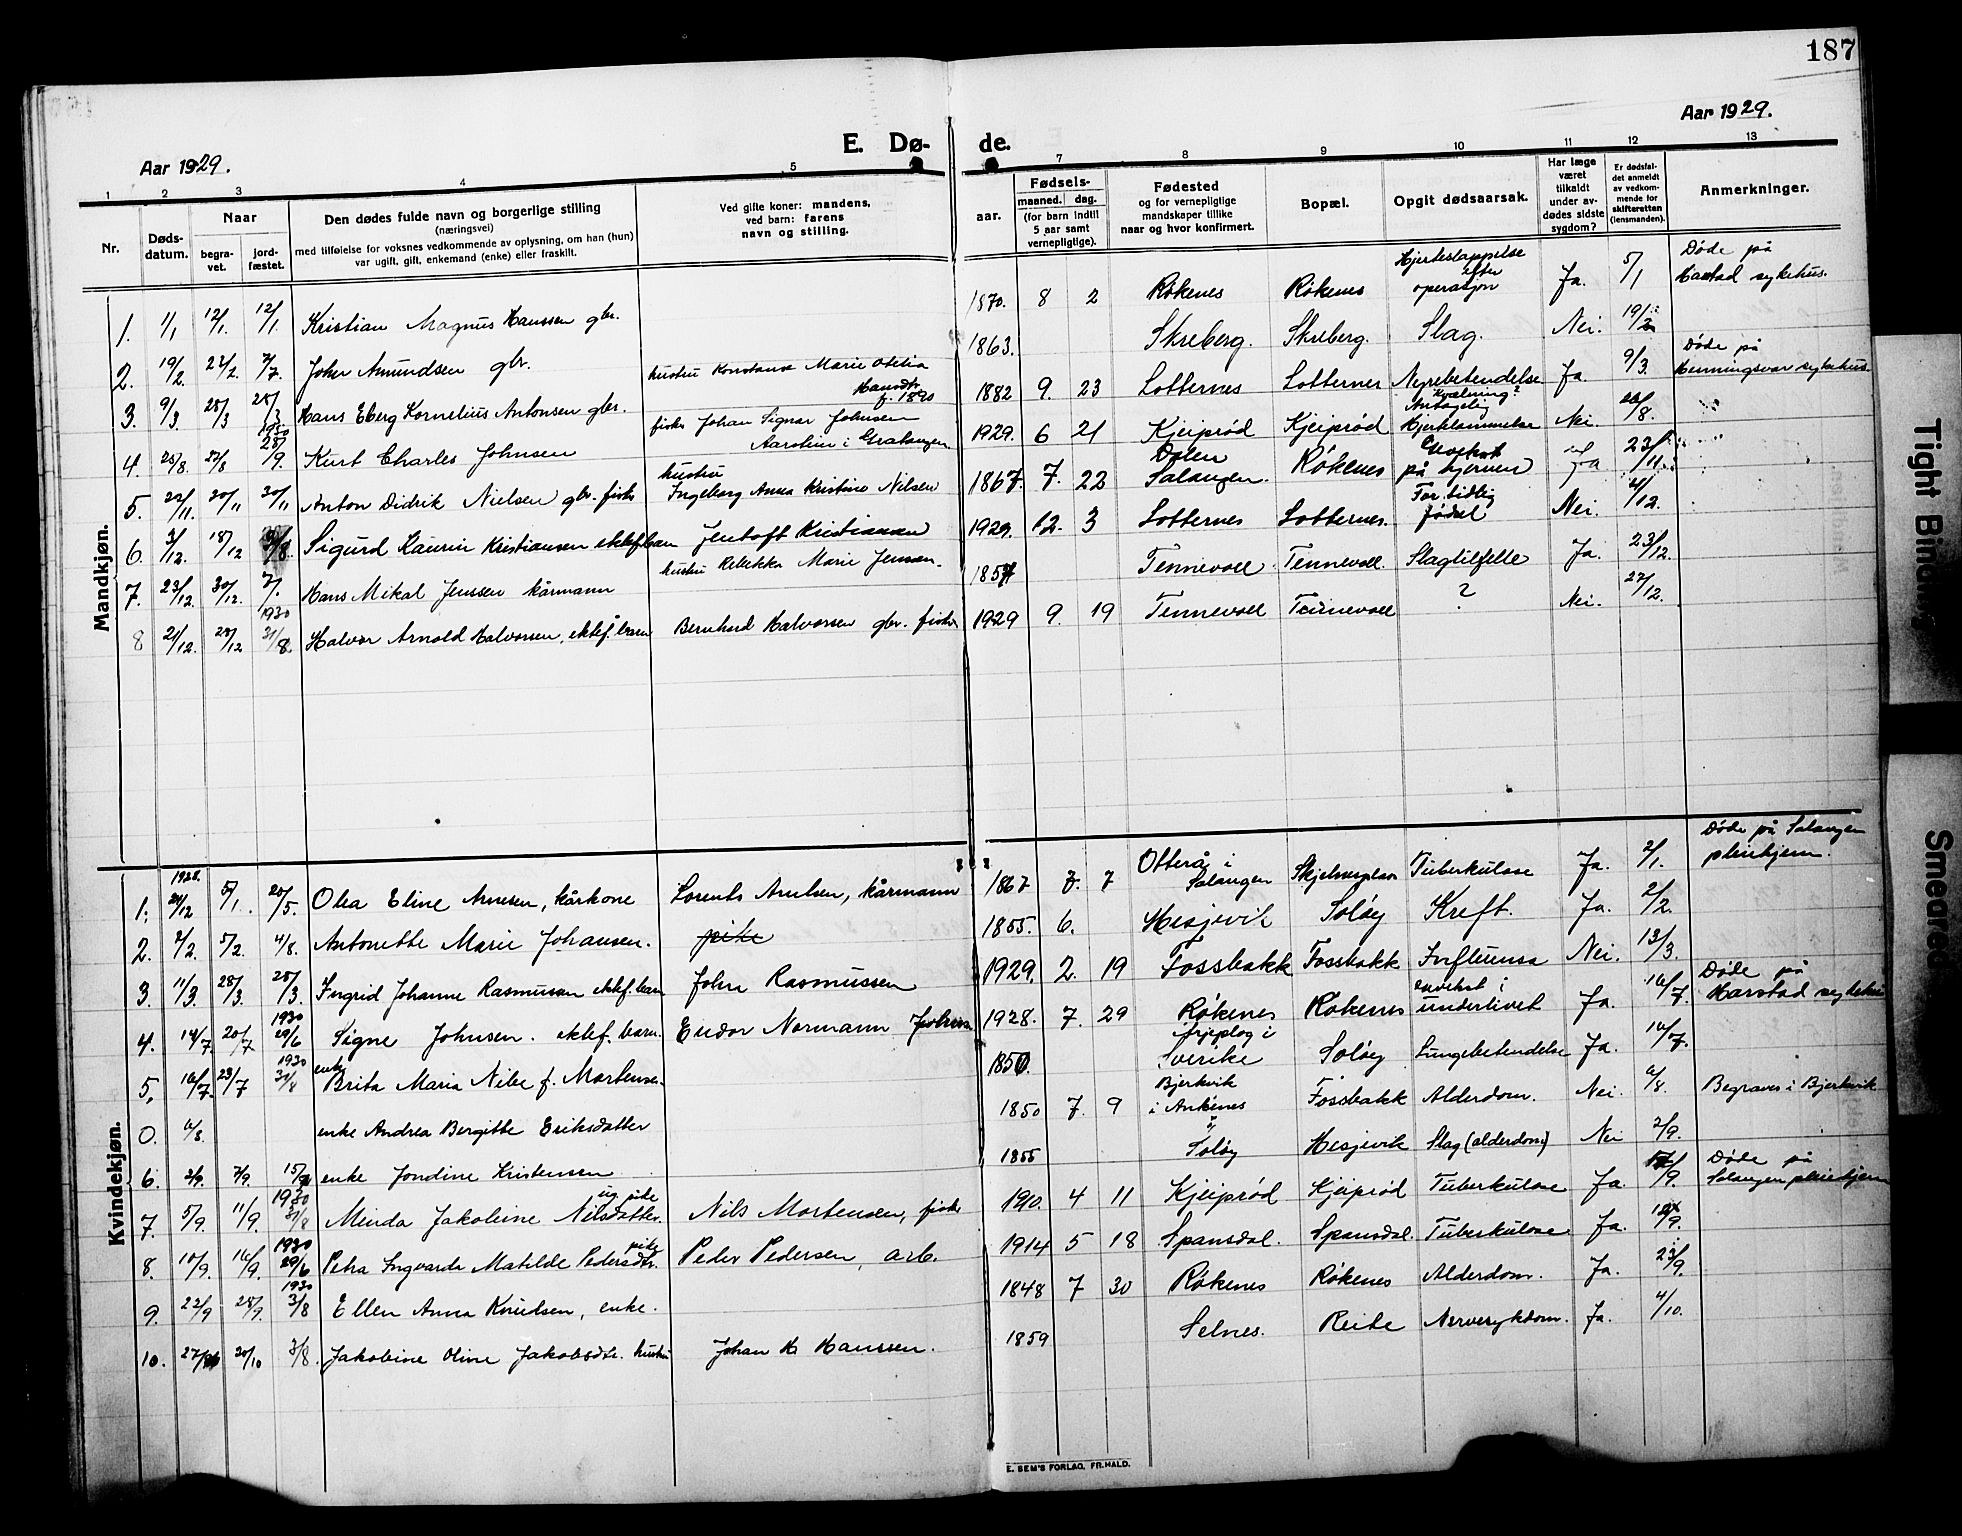 187
Aar 1929.
E. Dø-
de.
Aar 1929.
1 2 3 4 5
7 8 9 10 11 12 13
Nr.
Døds-
datum.
Naar
begra-
vet.
jord-
fæstet.
Den dødes fulde navn og borgerlige stilling
(næringsvei)
med tilføielse for voksnes vedkommende av oplysning, om han (hun)
var ugift, gift, enkemand (enke) eller fraskilt.
Ved gifte koner: mandens,
ved barn: farens
navn og stilling.
aar.
Fødsels-
maaned. dag.
(for barn indtil
5 aar samt
vernepligtige).
Fødested
og for vernepligtige
mandskaper tillike
naar og hvor konfirmert.
Bopæl.
Opgit dødsaarsak.
Har læge
været
tilkaldt
under av-
dødes sidste
sygdom?
Er dødsfal-
det anmeldt
av vedkom-
mende for
skifteretten
(lensmanden).
Anmerkninger.
Mandkjøn.
1. 1/1 12/1. 12/1. Kristian Magnus Hanssen gbr. 1870. 8 2 Røkenes Røkenes Hjerteslappelse efter operasjon Ja. 5/1 Døde på Harstad sykehus.
2. 19/2. 22/2. 7/7. Johan Amundsen gbr. 1863. Skreberg. Skreberg. Slag. Nei. 19/2
3. 9/3. 25/3 25/3 Hans Eberg Kornelius Antonsen gbr. hustru Konstanse Marie Otelia Hansdtr f. 1890 1882 9. 23 Lotternes Lotternes Nyrebetendelse Ja. 9/3. Døde på Henningsvær sykehus.
4. 25/8. 1930 28/9. Kurt Charles Johnsen fisker Johan Signar Johnsen Aarstein i Gratangen 1929. 6 21 Kjeiprød Kjeiprød Kvælning? Antagelig Hjertelammelse Nei. 26/8.
5. 22/11. 20/11 30/11 Anton Didrik Nielsen gbr. fisker hustru Ingeborg Anna Kristine Nilsen 1867. 7. 22 Dalen Salangen. Røkenes Utvekst på hjernen Ja 23/11.
6. 3/12. 18/12 Sigurd Laurin Kristiansen ektef. barn Jentoft Kristiansen 1929. 12. 3 Lotternes Lotternes. For tidlig fødsel Nei. 4/12.
7. 23/12. 30/12. 7/1. Hans Mikal Jenssen kårmann hustru Rebekka Marie Jenssen. 1857 Tennevoll Tennevoll. Slagtilfelle Ja. 23/12.
8 21/12. 28/12 1930 31/8. Halvor Arnold Halvorsen, ektef. barn Bernhard Halvorsen gbr. fisker 1929 9. 19 Tennevoll Tennevoll ? Nei. 27/12.
Kvindekjøn.
1. 1928. 24/12 5/1. 20/5. Olea Eline Arnesen, kårkone Lorents Arnesen, kårmann 1867 7. 7 Otterå i Salangen Tuberkulose Ja. 2/1. Døde på Salangen pleiehjem.
2. 2/2. 5/2. 4/8. Antonette Marie Johansen. pike 1855. 6. Hesjevik Soløy Kreft. Ja. 2/2.
3. 11/3. 28/3. 25/3. Ingrid Johanne Rasmussen ektef. barn John Rasmussen 1929. 2. 19 Fossbakk Fossbakk Influensa Nei. 13/3
4. 14/7. 20/7 1930 29/6 Signe Johnsen. ektef. barn. Endor Normann Johnsen 1928. 7. 29 Røkenes Røkenes utvekst i underlivet Ja. 16/7. Døde på Harstad sykehus
5. 16/7. 23/7 1930 31/8 enke Brita Maria Nibe f. Mortensen 1850. Arjeplog i Sverike Soløy Lungebetendelse Ja. 16/7.
0. 6/8. enke Andrea Bergitte Eriksdatter 1850 7. 9 Bjerkvik i Ankenes Fossbakk Alderdom. Nei. 6/8. Begraves i Bjerkvik
6. 2/9. 7/9. 15/9 enke Jondine Kristensen 1855 Soløy Hesjevik Slag (alderdom) Nei 2/9.
7. 5/9. 11/9. 1930 31/8 Minda Jakobine Nilsdatter. ug. pike Nils Mortensen, fisker 1910. 4 11 Kjeiprød Kjeiprød Tuberkulose Ja. Døde på Salangen pleiehjem
8. 10/9. 16/9. 1930 29/6 Petra Ingvarda Matilde Pedersdtr. pike Peder Pedersen, arb. 1914 5 18 Spansdal. Spansdal. Tuberkulose Ja.
9. 22/9 28/9. 1930 3/8 Ellen Anna Knudsen, enke. 1848 7 30 Røkenes Røkenes Alderdom. Ja. 23/9.
10. 20/10 3/8. Jakobine Oline Jakobsdtr. hustru Johan H Hanssen. 1859 Selnes. Reite Nervesykdom. Ja. 4/10.
E. SEM'S FORLAG, FR.HALD.
Tight Binding
Smeared